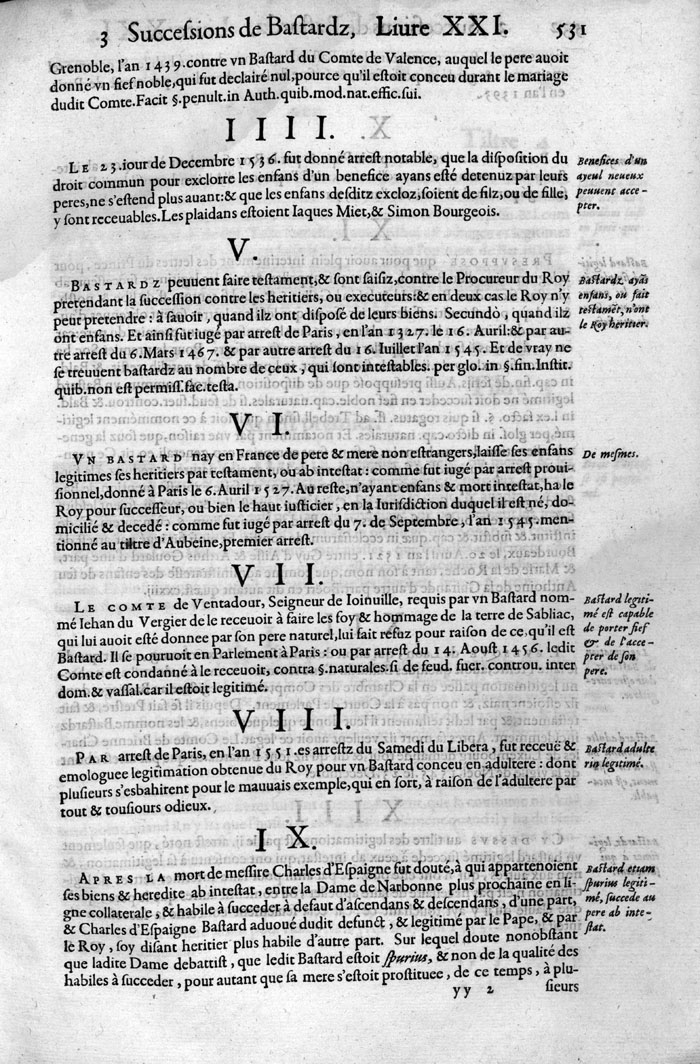 3 Succeſsions de Baſtardz, Liure XXI. 531
Grenoble, l'an 1439. contre vn Baſtard du Comte de Valence, auquel le pere auoit
donné vn fief noble, qui fut declairé nul, pource qu'il eſtoit conceu durant le mariage
dudit Comte. Facit §. penult. in Auth. quib. mod. nat. effic. ſui.
IIII.
LE 23. iour de Decembre 1536. fut donné arreſt notable, que la diſpoſition du
droit commun pour exclorre les enfans d'un benefice ayans eſté detenuz par leurs
peres, ne s'eſtend plus auant: & que les enfans deſditz excloz, ſoient de filz, ou de fille,
y ſont receuables. Les plaidans eſtoient Iaques Miet, & Simon Bourgeois.
Benefices d'un
ayeul neueux
peuuent acce-
pter.
V.
BASTARDZ peuuent faire teſtament, & ſont ſaiſiz, contre le Procureur du Roy
pretendant la ſucceſſion contre les heritiers, ou executeurs: & en deux cas le Roy n'y
peut pretendre: à ſauoir, quand ilz ont diſpoſé de leurs biens. Secundò, quand ilz
ont enfans. Et ainſi fut iugé par arreſt de Paris, en l'an 1327. le 16. Auril: & par au-
tre arreſt du 6. Mars 1467. & par autre arreſt du 16. Iuillet l'an 1545. Et de vray ne
ſe treuuent baſtardz au nombre de ceux, qui ſont inteſtables. per glo. in §. fin. Inſtit.
quib. non eſt permiſſ. fac. teſta.
Baſtardz ayãs
enfans, ou fait
teſtamẽt, n'ont
le Roy heritier.
VI.
VN BASTARD nay en France de pere & mere non eſtrangers, laiſſe ſes enfans
legitimes ſes heritiers par teſtament, ou ab inteſtat: comme fut iugé par arreſt proui-
ſionnel, donné à Paris le 6. Auril 1527. Au reſte, n'ayant enfans & mort inteſtat, ha le
Roy pour ſucceſſeur, ou bien le haut iuſticier, en la Iuriſdiction duquel il eſt né, do-
micilié & decedé: comme fut iugé par arreſt du 7. de Septembre, l'an 1545. men-
tionné au tiltre d'Aubeine, premier arreſt.
De meſmes.
VII.
LE COMTE de Ventadour, Seigneur de Ioinuille, requis par vn Baſtard nom-
mé Iehan du Vergier de le receuoir à faire les foy & hommage de la terre de Sabliac,
qui lui auoit eſté donnee par ſon pere naturel, lui fait refuz pour raiſon de ce qu'il eſt
Baſtard. Il ſe pouruoit en Parlement à Paris: ou par arreſt du 14. Aouſt 1456. ledit
Comte eſt condanné à le receuoir, contra §. naturales. ſi de feud. fuer. controu. inter
dom. & vaſſal. car il eſtoit legitimé.
Baſtard legiti-
mé eſt capable
de porter fief
& de l'acce-
pter de ſon
pere.
VIII.
PAR arreſt de Paris, en l'an 1551. es arreſtz du Samedi du Libera, fut receuë &
emologuee legitimation obtenue du Roy pour vn Baſtard conceu en adultere: dont
pluſieurs s'esbahirent pour le mauuais exemple, qui en ſort, à raiſon de l'adultere par
tout & touſiours odieux.
Baſtard adulte
rin legitimé.
IX.
APRES LA mort de meſſire Charles d'Eſpaigne fut douté, à qui appartenoient
ſes biens & heredité ab inteſtat, entre la Dame de Narbonne plus prochaine en li-
gne collaterale, & habile à ſucceder à defaut d'aſcendans & deſcendans, d'une part,
& Charles d'Eſpaigne Baſtard aduoué dudit defunct, & legitimé par le Pape, & par
le Roy, ſoy diſant heritier plus habile d'autre part. Sur lequel doute nonobſtant
que ladite Dame debattiſt, que ledit Baſtard eſtoit ſpurius, & non de la qualité des
habiles à ſucceder, pour autant que ſa mere s'eſtoit proſtituee, de ce temps, à plu-
Baſtard etiam
ſpurius legiti-
mé, ſuccede au
pere ab inte-
ſtat.
yy 2 ſieurs